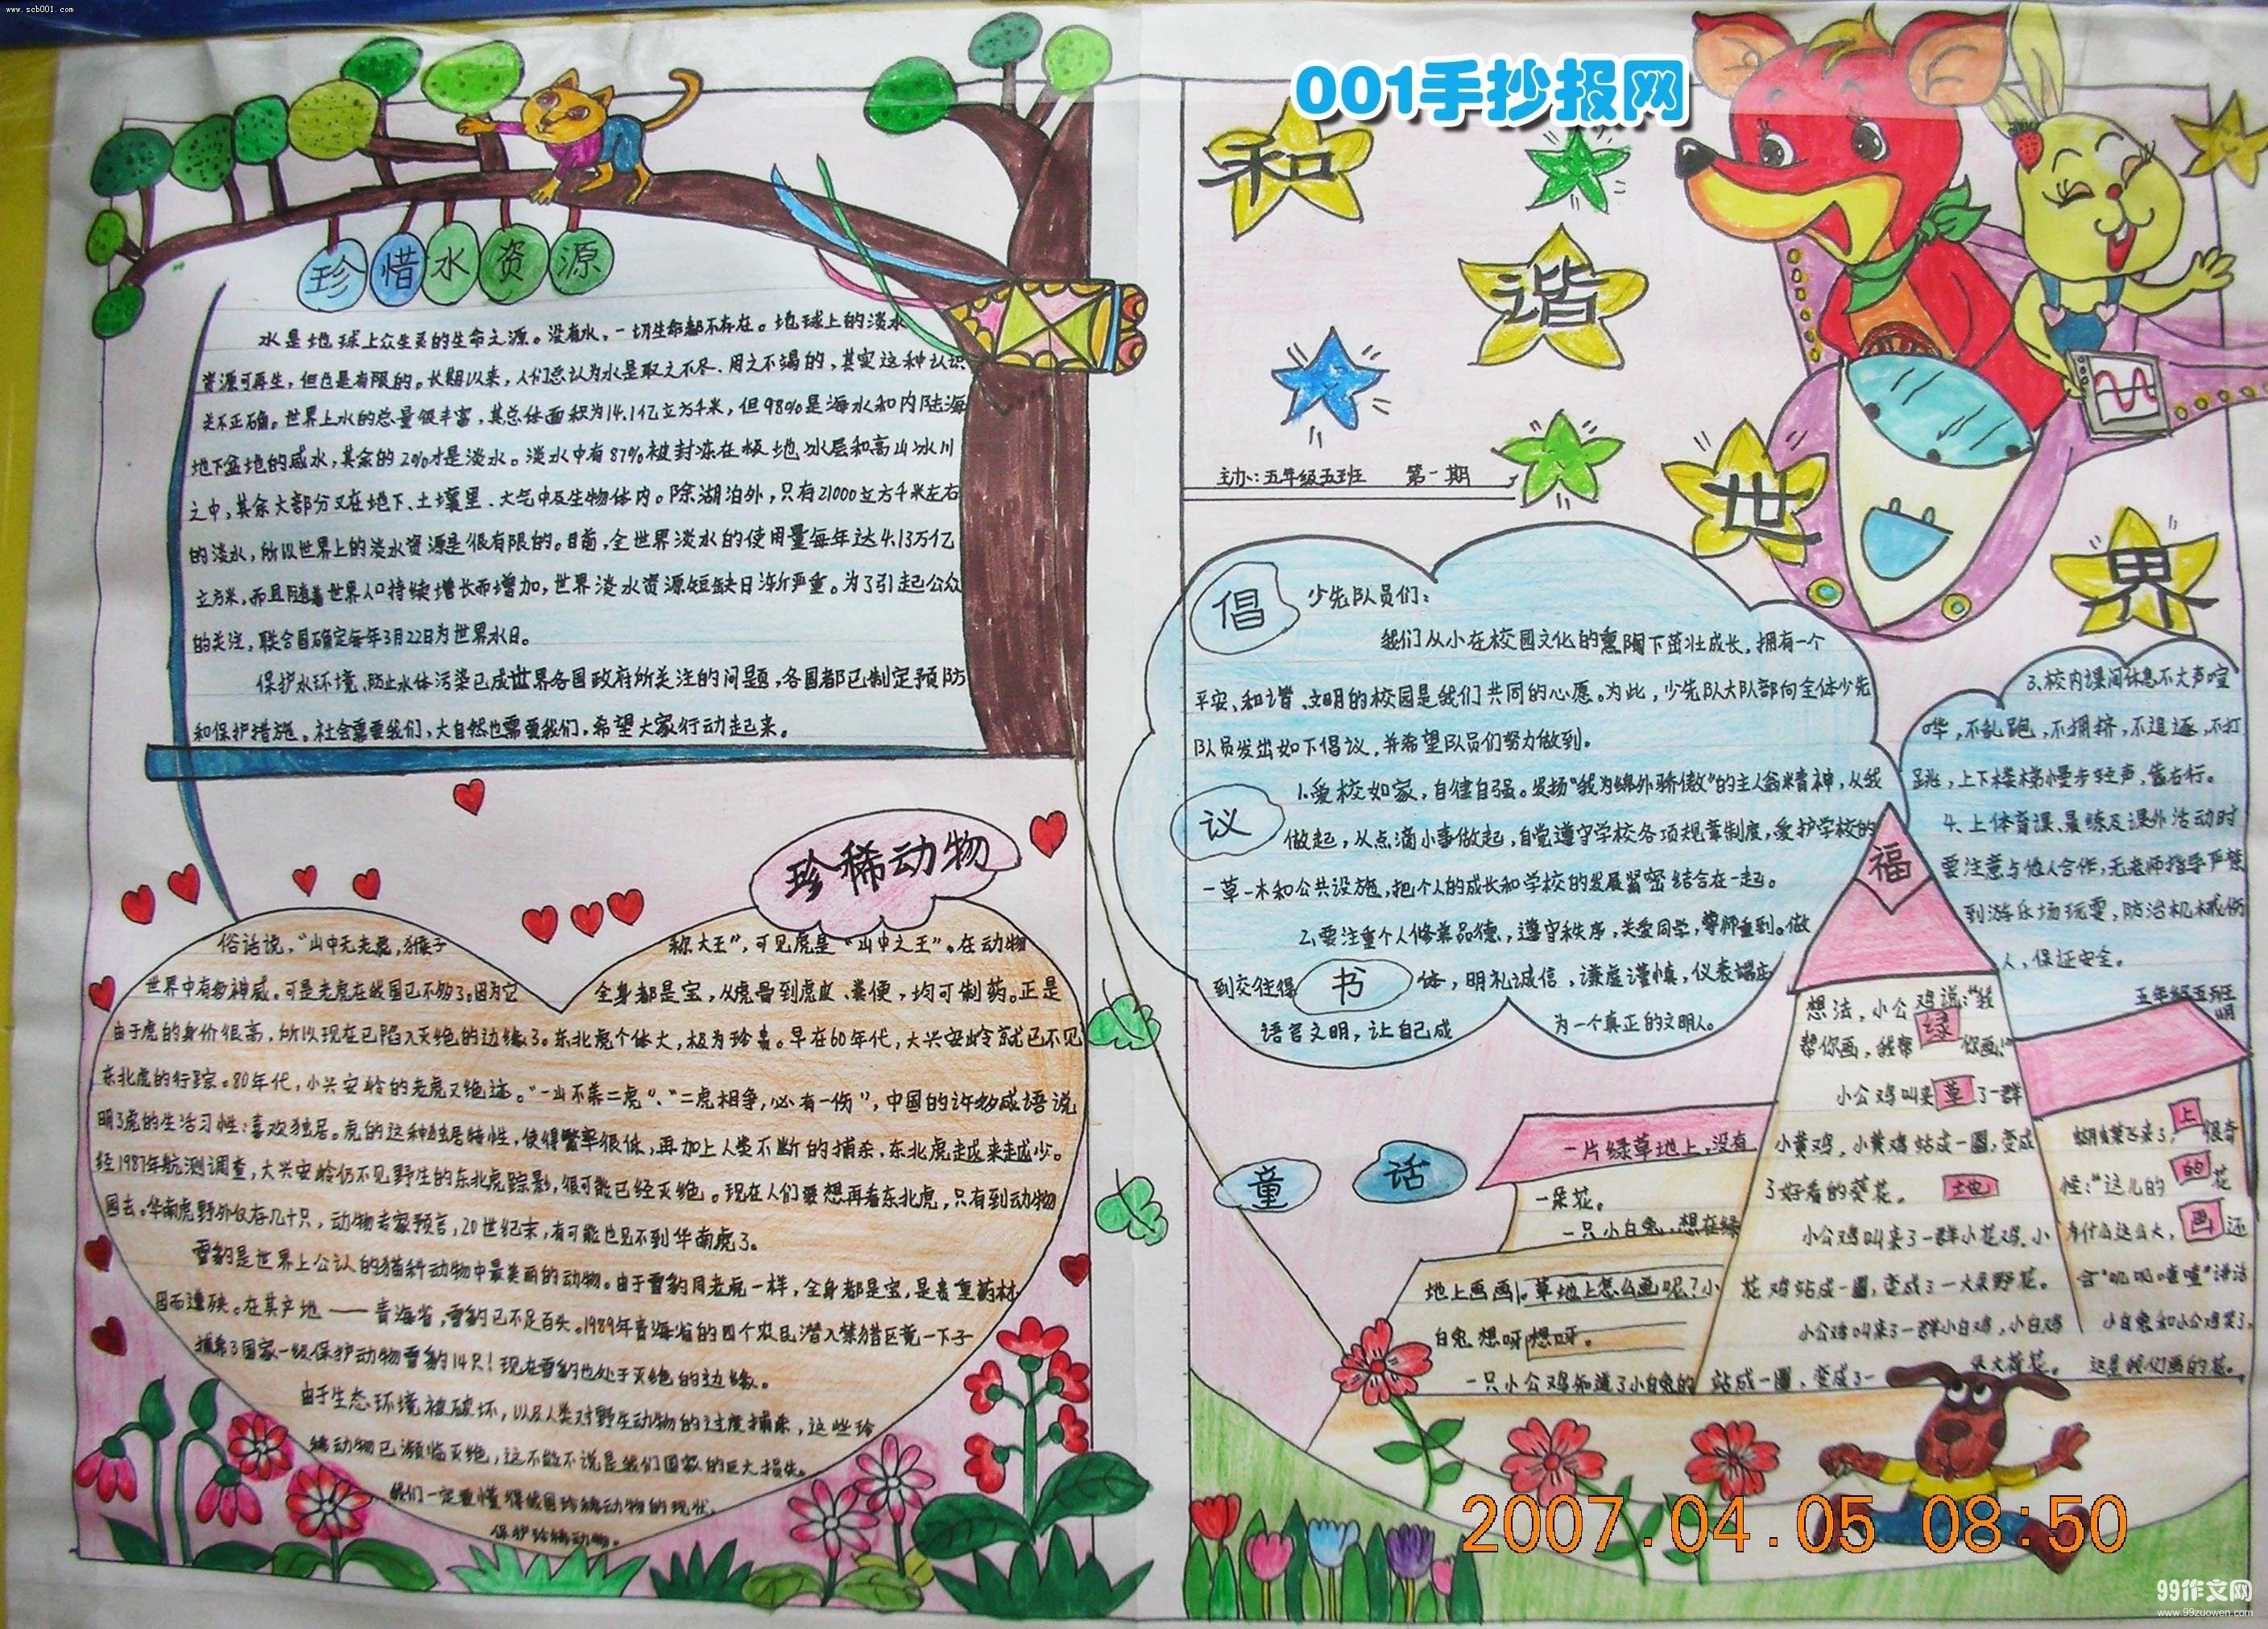 www.scb001.com
001手抄报网
珍惜水资源
水是地球上众生灵的生命之源。没有水，一切生命都不存在。地球上的淡水
资源可再生，但也是有限的。长期以来，人们总认为水是取之不尽、用之不竭的，其实这种认识
并不正确。世界上水的总量很丰富，其总体面积为14.1亿立方千米，但98%是海水和内陆海
地下盆地的咸水，其余的2%才是淡水。淡水中有87%被封冻在极地冰层和高山冰川
之中，其余大部分又在地下、土壤里、大气中及生物体内。除湖泊外，只有21000立方千米左右
的淡水，所以世界上的淡水资源是很有限的。目前，全世界淡水的使用量每年达4.13万亿
立方米，而且随着世界人口持续增长而增加，世界淡水资源短缺日渐严重。为了引起公众
的关注，联合国确定每年3月22日为世界水日。
保护水环境，防止水体污染已成世界各国政府所关注的问题，各国都已制定预防
和保护措施。社会需要我们，大自然也需要我们，希望大家行动起来。
珍稀动物
俗话说，“山中无老虎，猴子
称大王”，可见虎是“山中之王”。在动物
世界中有多神威。可是老虎在我国已不够了。因为它
全身都是宝，从虎骨到虎皮、粪便，均可制药。正是
由于虎的身价很高，所以现在已陷入灭绝的边缘了。东北虎个体大，极为珍贵。早在60年代，大兴安岭就已不见
东北虎的行踪。80年代，小兴安岭的老虎又绝迹。“一山不养二虎”、“二虎相争，必有一伤”，中国的许多成语说
明了虎的生活习性：喜欢独居。虎的这种独居特性，使得繁率很低，再加上人类不断的捕杀，东北虎越来越少。
经1987年航测调查，大兴安岭仍不见野生的东北虎踪影，很可能已经灭绝。现在人们要想再看东北虎，只有到动物
园去。华南虎野外仅存几十只，动物专家预言，20世纪末，有可能也见不到华南虎了。
雪豹是世界上公认的猫科动物中最美丽的动物。由于雪豹同老虎一样，全身都是宝，是贵重药材
因而遭殃。在其产地——青海省，雪豹已不足百头。1989年青海省的四个农民潜入禁猎区竟一下子
捕杀了国家一级保护动物雪豹14只！现在雪豹也处于灭绝的边缘。
由于生态环境被破坏，以及人类对野生动物的过度捕杀，这些珍
稀动物已濒临灭绝，这不能不说是我们国家的巨大损失。
我们一定要懂得我国珍稀动物的现状，
保护珍稀动物。
和
谐
世
界
主办：五年级五班 第一期
倡
议
书
少先队员们：
我们从小在校园文化的熏陶下茁壮成长，拥有一个
平安、和谐、文明的校园是我们共同的心愿。为此，少先队大队部向全体少先
队员发出如下倡议，并希望队员们努力做到。
1.爱校如家，自健自强。发扬“我为绵外骄傲”的主人翁精神，从我
做起，从点滴小事做起，自觉遵守学校各项规章制度，爱护学校的
一草一木和公共设施，把个人的成长和学校的发展紧密结合在一起。
2.要注重个人修养品德，遵守秩序，关爱同学，尊师重到。做
到交往得体，明礼诚信，谦虚谨慎，仪表端庄
语言文明，让自己成为一个真正的文明人。
3.校内课间休息不大声喧
哗，不乱跑，不拥挤，不追逐，不打
跳，上下楼梯慢步轻声，靠右行。
4.上体育课、晨练及课外活动时
要注意与他人合作，无老师指导严禁
到游乐场玩耍，防治机械伤
人，保证安全。
五年级五班
明
童
话
福
绿
草
地
上
的
画
一片绿草地上，没有
一朵花。
一只小白兔，想在绿
地上画画。草地上怎么画呢？小
白兔想呀想呀。
一只小公鸡知道了小白兔的
想法，小公鸡说：“我
帮你画，我帮你画！”
小公鸡叫来了一群
小黄鸡，小黄鸡站成一圈，变成
了好看的葵花。
小公鸡叫来了一群小花鸡，小
花鸡站成一圈，变成了一大朵野花。
小公鸡叫来了一群小白鸡，小白鸡
站成一圈，变成了一朵大荷花。
蝴蝶飞来了，很奇
怪：“这儿的花
为什么这么大，还
会“叽叽喳喳”讲话
小白兔和小公鸡笑了，
这是我们画的花。
2007.04.05 08:50
99作文网
www.99zuowen.com